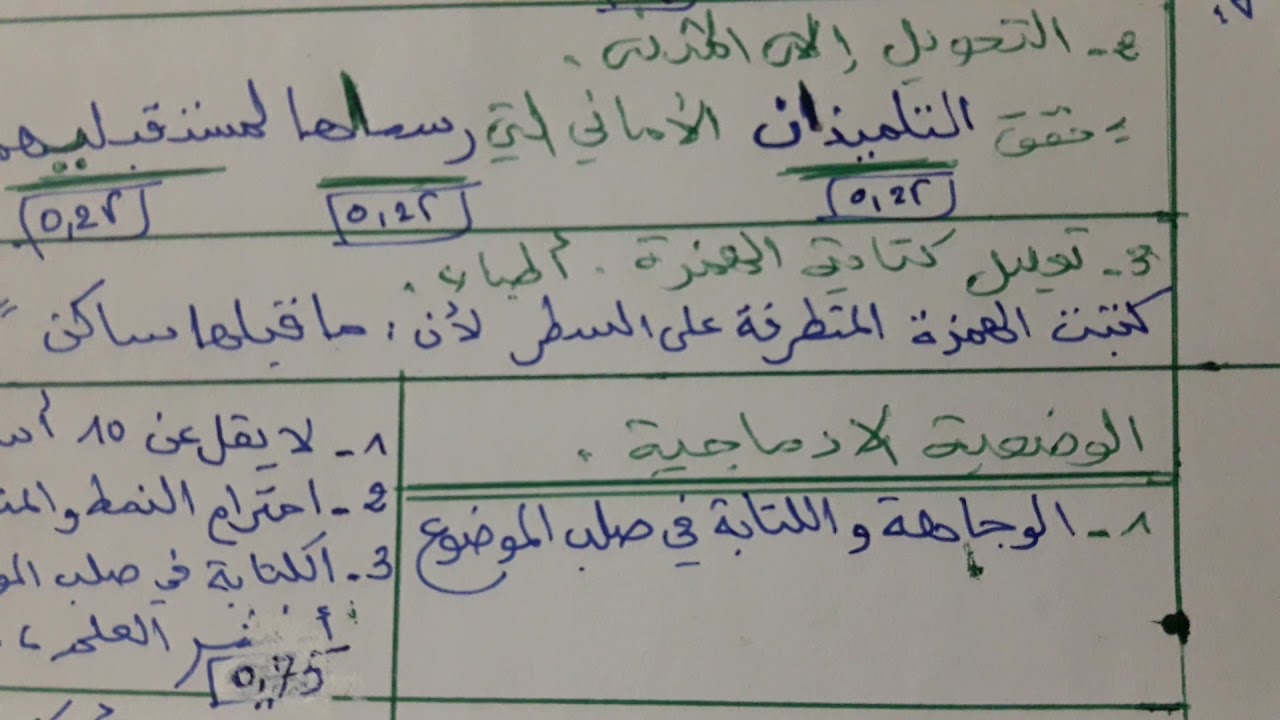 ـ التحويل إلى المثنى .
يحقق التلميذان الأماني التي رسماها لمستقبليهم
0,25 0,25 0,25
3 - تعليل كتابة الهمزة . أطباء .
كتبت الهمزة المتطرفة على السطر لأن : ما قبلها ساكن
الوضعية الادماجية .
1 - الوجاهة و الكتابة في صلب الموضوع
1 - لا يقل عن 10
2 - احترام النمط و
3 - الكتابة في صلب
العلم ،
0,75